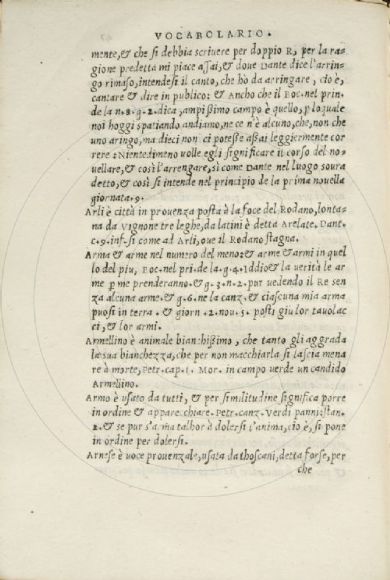 VOCABOLARIO.
mente, & che si debbia scriuere per doppio R, per la ra-
gione predetta mi piace assai, & doue Dante dice l'arrin-
go rimaso, intendesi il canto, che hò da arringare, cio è,
cantare & dire in publico: & Ancho che il Boc. nel prin.
de la n.8.g.2. dica, ampissimo campo è quello, p lo quale
noi hoggi spatiando andiamo, ne ce n'è alcuno, che, non che
uno aringo, ma dieci non ci potesse assai leggiermente cor
rere: Nientedimeno uolle egli significare il corso del no-
uellare, & così l'arrengare, sì come Dante nel luogo soura
detto, & così si intende nel principio de la prima nouella
giornata.9.
Arli è città in prouenza posta à la foce del Rodano, lonta-
na da Vignone tre leghe, da latini è detta Arelate. Dant.
c.9.inf. si come ad Arli, oue il Rodano stagna.
Arma & arme nel numero del meno: & arme & armi in quel
lo del piu, Boc. nel pri. de la.g.4. Iddio & la uerità le ar
me p me prenderanno. & g.3.n.2. pur uedendo il Re sen
za alcuna arme. & g.6. ne la canz. & ciascuna mia arma
puosi in terra, & giorn.2.nou.5. posti giu lor tauolac
ci, & lor armi.
Armellino è animale bianchissimo, che tanto gli aggrada
la sua bianchezza, che per non macchiarla si lascia mena
re à morte, Petr. cap.1. Mor. in campo uerde un candido
Armellino.
Armo è usato da tutti, & per similitudine significa porre
in ordine & apparecchiare. Petr. canz. Verdi panni stan.
2. & se pur s'arma talhor à dolersi l'anima, cio è, si pone
in ordine per dolersi.
Arnese è uoce prouenzale, usata da thoscani, detta forse, per
che